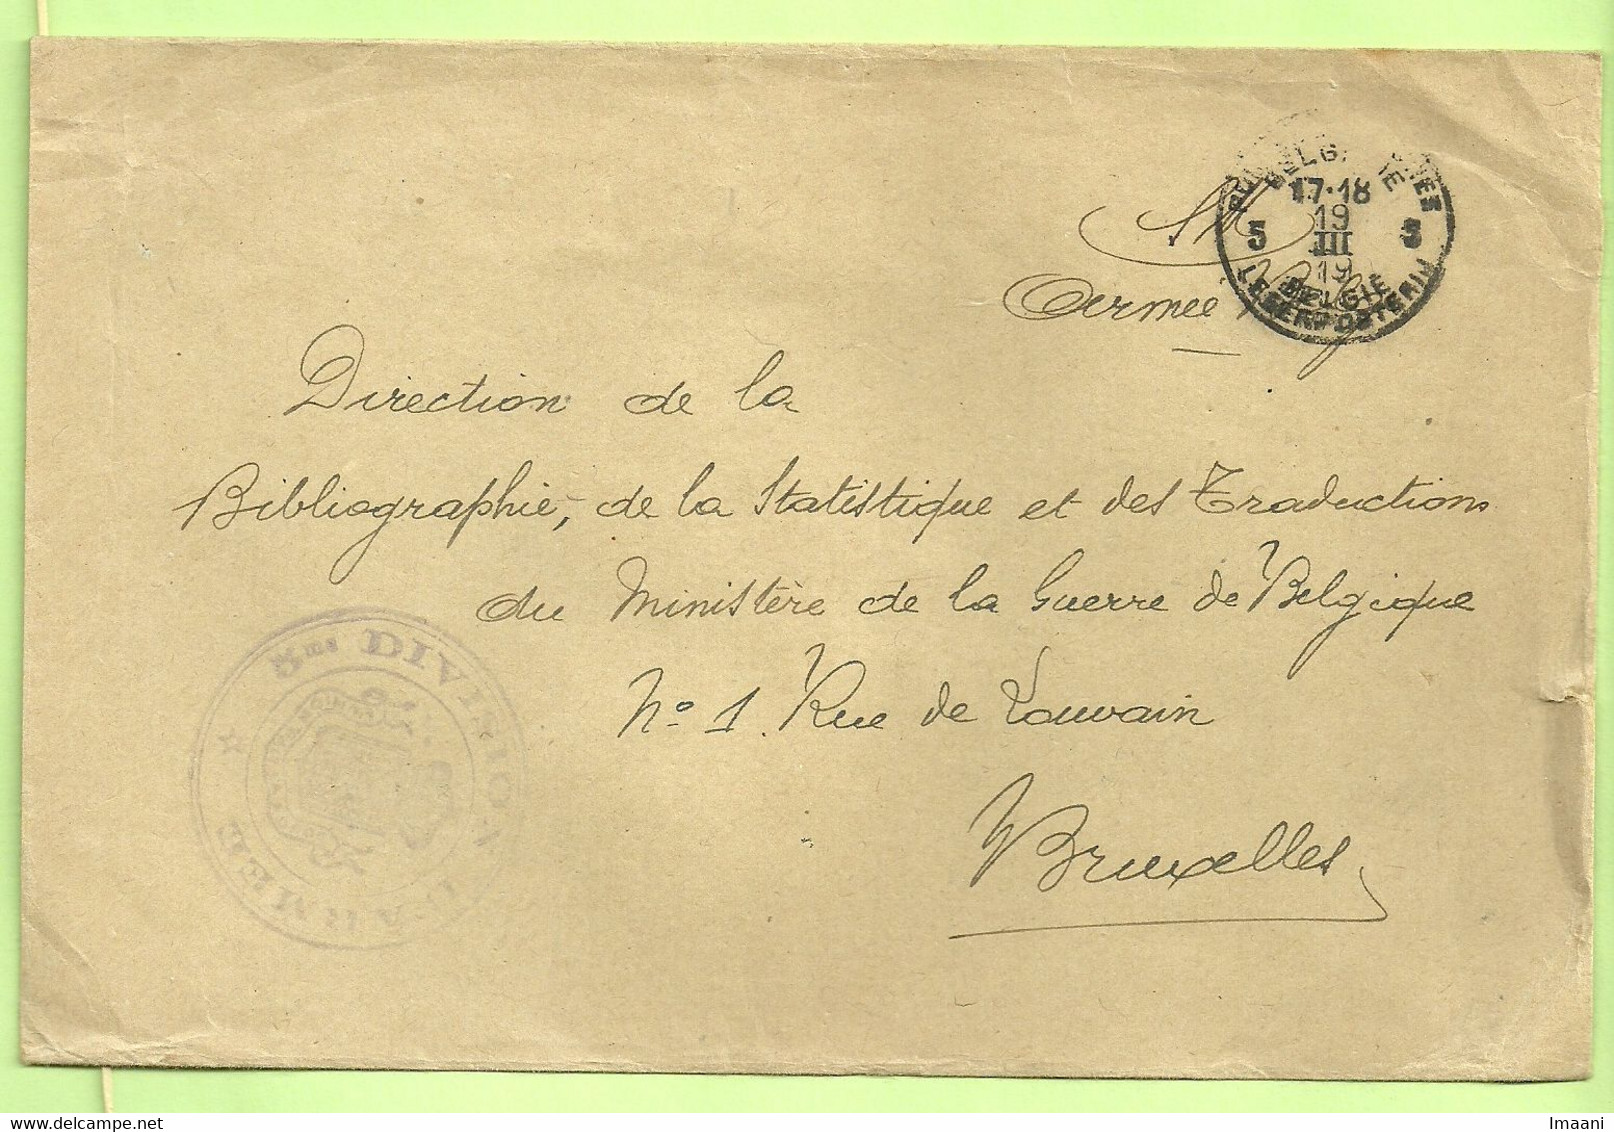 SM
Armee Belge
BELGIQUE
17-18
19
III
19
5 5
BELGIË
LEGERPOSTERIJ
Direction de la
Bibliographie, de la Statistique et des Traductions
du Ministère de la Guerre de Belgique
No 1 Rue de Louvain
Bruxelles
5me DIVISION D'ARMEE
Imaani